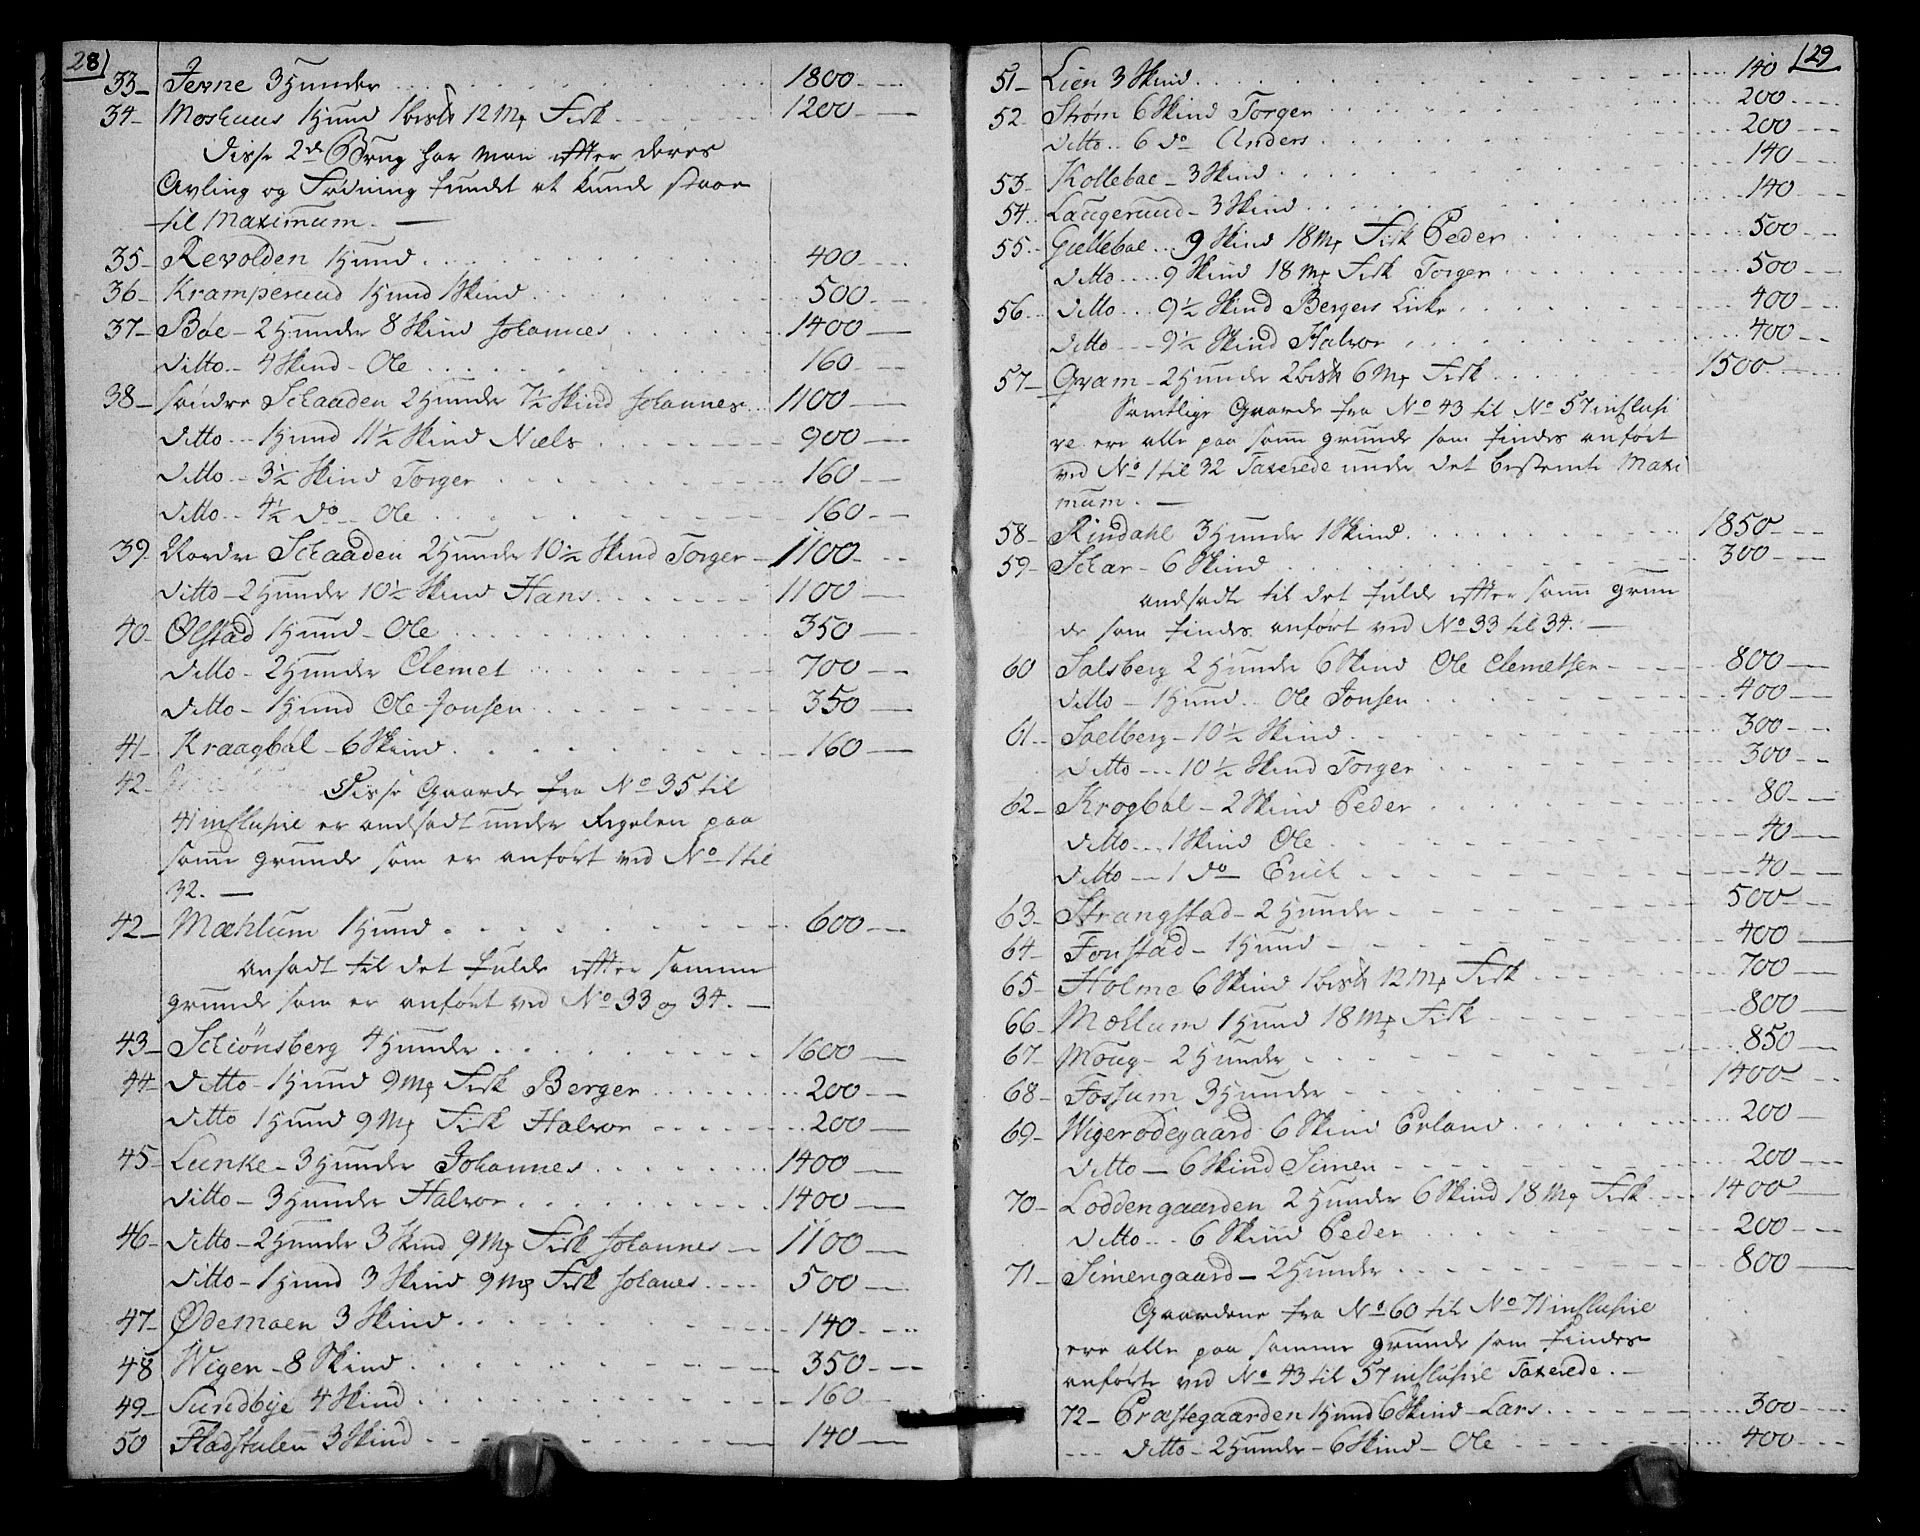 28)
33 - Jevne 3 Hunder 1800
34 - Moshuus 1 Hund 1 bisk 12 Mk Fisk 1200
Disse 2de Brug har man efter deres
Avling og Födning fundet at kunde staae
til Maximum. —
35 - Revolden 1 Hund 400
36 - Kramperud 1 Hund 1 Skind 500
37 - Böe - 2 Hunder 8 Skind Johannes 1400
Ditto - 4 Skind - Ole 160
38 - Søndre Schaaden 2 Hunder 7½ Skind Johannes 1100
Ditto - 1 Hund 11½ Skind Niels 900
Ditto - 3½ Skind Torger 160
Ditto - 4½ do - Ole 160
39 - Nordre Schaaden 2 Hunder 10½ Skind Torger 1100
Ditto - 2 Hunder 10½ Skind Hans 1100
40 - Ølstad 1 Hund - Ole 350
Ditto - 2 Hunder Clemet 700
Ditto - 1 Hund Ole Jonsen 350
41 - Kraagböl - 6 Skind 160
42 - Disse Gaarde fra No 35 til
41 inclusive er andsadt under Regelen paa
samme grunde som er anfört ved No 1 til
32. —
42 - Mæhlum 1 Hund 600
ansadt til det fulde efter samme
grunde som er anfört ved No 33 og 34. —
43 - Schiönsberg 4 Hunder 1600
44 - Ditto - 1 Hund 9 Mk Fisk Berger 200
Ditto 1 Hund 9 Mk Fisk Halvor 200
45 - Lunke - 3 Hunder Johannes 1400
Ditto - 3 Hunder Halvor 1400
46 - Ditto - 2 Hunder 3 Skind 9 Mk Fisk Johannes 1100
Ditto - 1 Hund 3 Skind 9 Mk Fisk Johanes 500
47 - Ødemoen 3 Skind 140
48 Wigen - 8 Skind 350
49 - Sundbye 4 Skind 160
50 Fladstulen 3 Skind 140
(29
51 - Lien 3 Skind 140
52 - Strøm 6 Skind Torger 200
Ditto - 6 do Anders 200
53 - Kollebae - 3 Skind 140
54 - Laugerud - 3 Skind 140
55 - Giellebae 9 Skind 18 Mk Fisk Peder 500
Ditto - 9 Skind 18 Mk Fisk Torger 500
56 - Ditto - 9½ Skind Bergers Enke 400
Ditto - 9½ Skind Halvor 400
57 - Qvam - 2 Hunder 2 bisk 6 Mk Fisk 1500
Samtlige Gaarde fra No 43 til No 57 inclusi
ve ere alle paa samme grunde som findes anfört
ved No 1 til 32 Taxerede under det bestemte Maxi
mum. —
58 - Rindahl 3 Hunder 1 Skind 1850
59 - Schar - 6 Skind 300
andsadte til det fulde efter samme grun
de som findes anfört ved No 33 til 34. —
60 Salsberg 2 Hunder 6 Skind Ole Clemetsen 800
Ditto - 1 Hund - Ole Jonsen 400
61 - Soelberg - 10½ Skind 300
Ditto - 10½ Skind Torger 300
62 - Krogböl - 2 Skind Peder 80
Ditto - 1 Skind Ole 40
Ditto - 1 do Erich 40
63 - Strangstad - 2 Hunder 500
64 - Fonstad - 1 Hund 400
65 - Holme 6 Skind 1 bisk 12 Mk Fisk 700
66 - Mæhlum 1 Hund 18 Mk Fisk 800
67 - Moug - 2 Hunder 850
68 - Fossum 3 Hunder 1400
69 - Wigerødegaard 6 Skind Erland 200
Ditto - 6 Skind Simen 200
70 - Loddengaarden 2 Hunder 6 Skind 18 Mk Fisk 1400
Ditto - 6 Skind Peder 200
71 - Simengaard - 2 Hunder 800
Gaardene fra No 60 til No 71 inclusive
ere alle paa samme grunde som findes
anförte ved No 43 til 57 inclusive Taxerede. —
72 - Præstegaarden 1 Hund 6 Skind - Lars 300
Ditto - 2 Hunder - 6 Skind - Ole 400